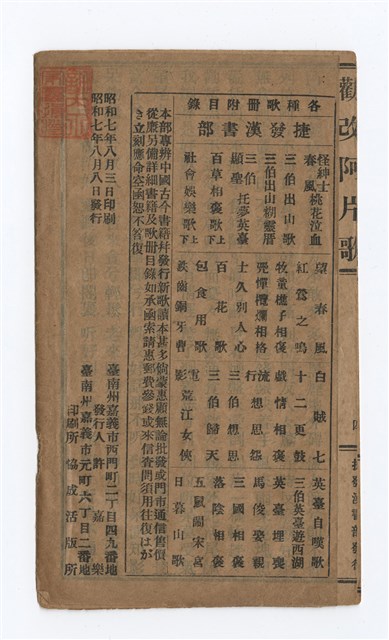 勸改阿片歌
各種歌冊附目錄
捷發漢書部
怪紳士
春風 桃花泣血
三伯出山歌
三伯出山糊靈厝
三伯托夢英臺
顯聖
百草相褒歌 上下
社會娛樂歌 上下
望春風
紅鶯之鳴
牧童樵子相褒
士久別人心
百花歌
包食用歌
白賊七
十二更鼓
戲情相褒
流行想思怨
三伯想思
三伯歸天
電影荒江女俠
英臺自嘆歌
三伯英臺遊西湖
英臺埋喪
馬俊娶親
三國相褒
落陰相褒
五鼠鬧宋宮
日暮山歌
本部專辨中國古今書籍幷發行新歌讀本甚多倘蒙惠顧無論批發或門市通信售價
從廉另備詳細書籍及歌冊目錄如承函索請惠郵費參錢或來信查問須用往復はが
き立刻應命空函恕不答復
昭和七年八月三日印刷
昭和七年八月八日發行
臺南州嘉義市西門町二丁目四九番地
發行人 許嘉樂
臺南州嘉義市元町六丁目二番地
印刷所 協成活版所